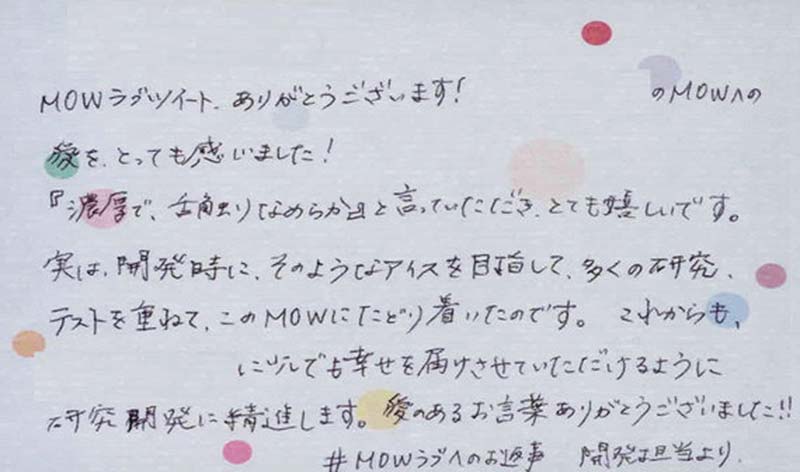 MOWラブツイート、ありがとうございます! のMOWへの
愛を、とっても感いました!
『濃厚で、舌触りなめらか』と言っていただき、とても嬉しいです。
実は、開発時に、そのようなアイスを目指して、多くの研究、
テストを重ねて、このMOWにたどり着いたのです。 これからも、
に少しでも幸せを届けさせていただけるように
研究開発に精進します。愛のあるお言葉ありがとうございました!!
#MOWラブへのお返事 開発担当より